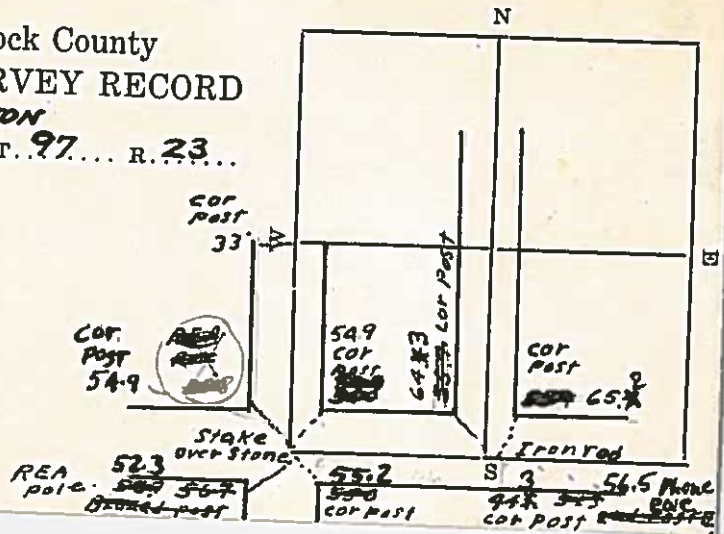 ock County
RVEY RECORD
TON
T. 97 .... R. 23 ...
N
cor
post
33
W
E
Cor.
Post
54.9
REA
54.9
cor
post
64 3
cor post
cor
post
65.2
Stake
over stone
Iron rod
S
REA
pole.
52.3
55.2
cor post
3
44
cor post
56.5 Phone
pole